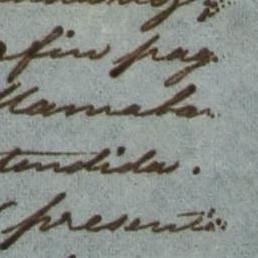 fin pag
llamaba
tendida.
presente